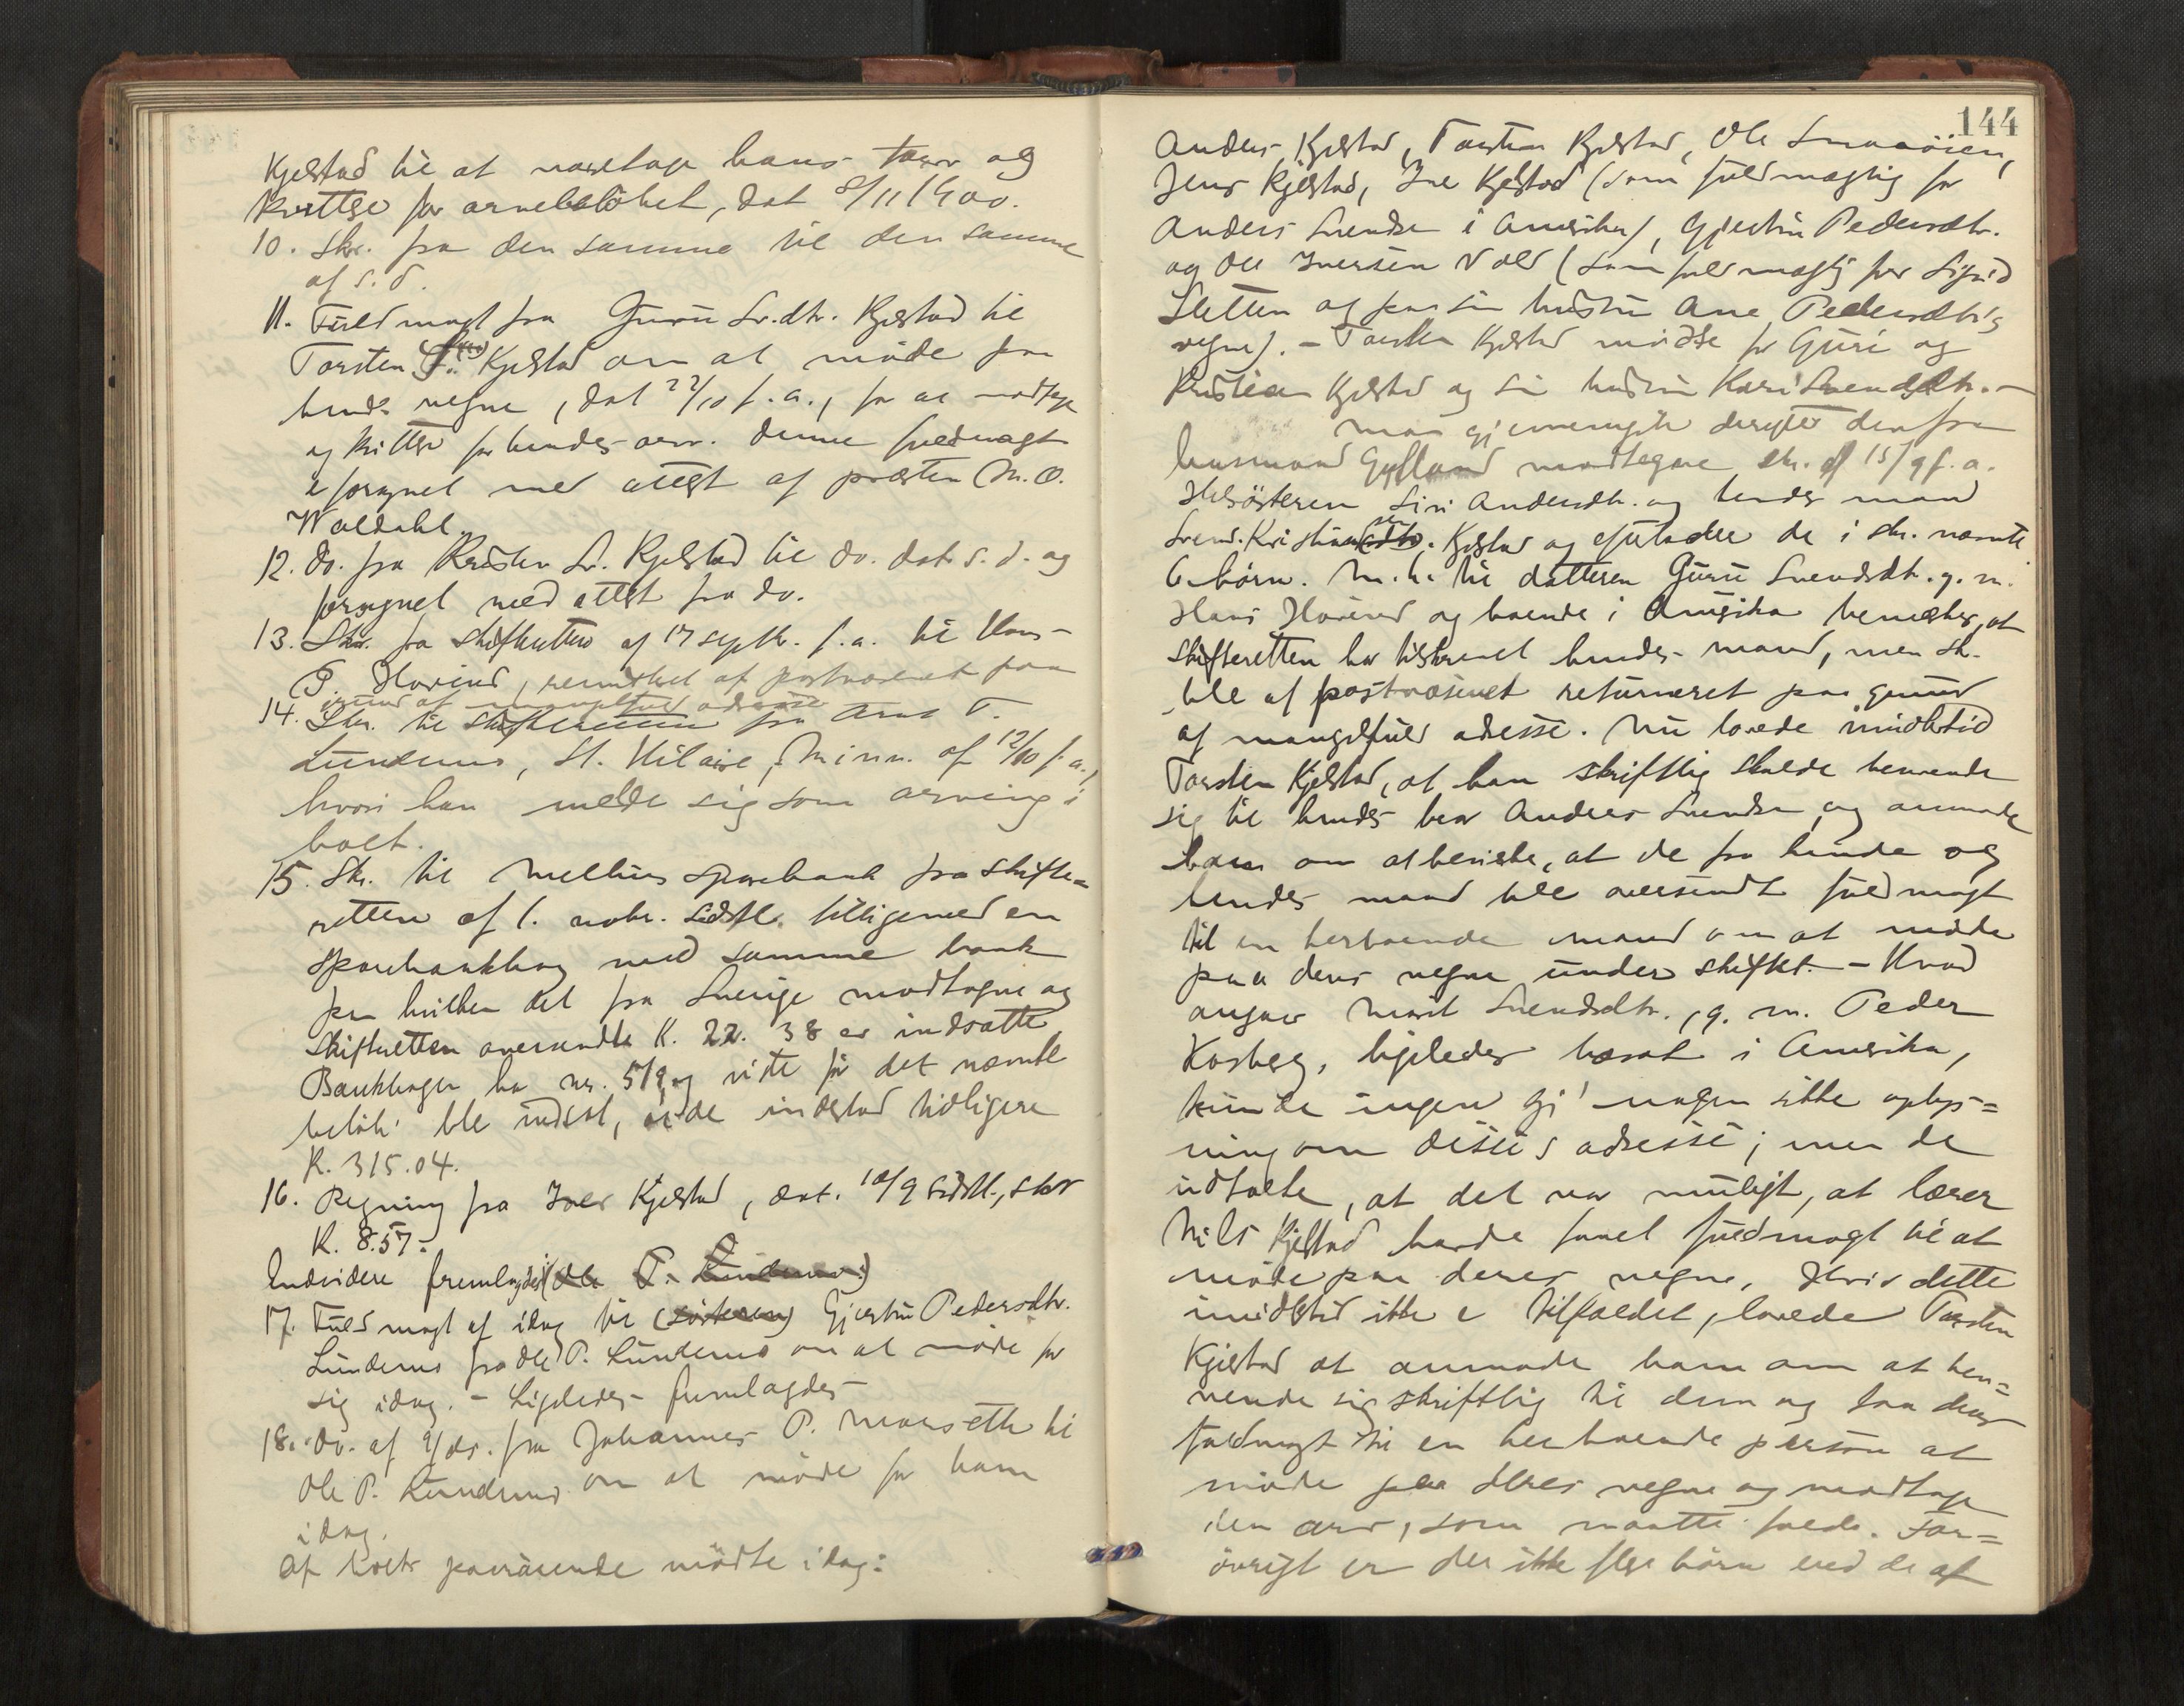 Kjelstad til at varetage hans tarv og
kvittere for arvebeløbet, dat 8/11 1900.
10. Skr. fra den samme til den samme
af s. d.
11. Fuldmagt fra Guru Sv.dtr. Kjelstad til
Torsten Kjelstad om at møde paa
hendes vegne, dat 22/10 f. a., for at modtage
og kvittere for hendes arv. Denne fuldmagt
er forsynet med attest af presten M. O.
Waldahl.
12. Do. fra Kristen Sv. Kjelstad til do. dat s. d. og
forsynet med attest fra do.
13. Skr. fra skifteretten af 17 septbr. f. a. til Hans
P. Hovind, remitteret af postvæsenet paa
grund af mangelfuld adresse
14. Skr. til skifteretten fra Arnt T.
Lundemo, St. Hilaire, Minn. af 12/10 f. a.,
hvori han melde sig som arving i
boet.
15. Skr. til Melhus sparebank fra skifte=
retten af 1. novbr. sidstl. tilligemed en
sparebankbog med samme bank
paa hvilken det fra Sverige modtagne og
skifteretten oversendte K. 22. 38 er indsatte
Bankbogen har nr. 519 og viste før det nævnte
beløb ble indsat, øide indestod tidligere
K. 315.04.
16. Regning fra Iver Kjelstad, dat. 10/9 sidstl., stor
K. 8.57.
Endvidere fremlagdes (Ole P. Lundemo:)
17. Fuldmagt af idag til (søsteren) Gjertru Pedersdtr.
Lundemo fra Ole P. Lundemo om at møde for
sig idag. - Ligeledes fremlagdes
18. Do. af 9/ds. fra Johannes P. Morseth til
Ole P. Lundemo om at møde for ham
idag.
Af boets paarørende mødte idag:
144
Anders Kjelstad, Torsten Kjelstad, Ole Smaaøien,
Jens Kjelstad, Iver Kjelstad (som fuldmægtig for
Anders Svendsen i Amerika), Gjertru Pedersdtr.
og Ole Iversen Vold (som fuldmægtig for Sigrid
Sletten og paa sin hustru Ane Pedersdtr's
vegne). - Torsten Kjelstad mødte for Guri og
Kristian Kjelstad og sin hustru Kari Svendsdtr. -
Man gjennemgik derefter den fra
lensmand Gylland modtagne skr. af 15/9 f. a.
Helsøsteren Siri Andersdtr. og hendes mand
Svend Kristiansen Kjelstad og efterlod de i skr. nævnte
6 børn. M. h. til datteren Guru Svendsdtr. g. m.
Hans Hovind og boende i Amerika bemerkes, at
skifteretten har tilskrevet hendes mand, men sk.
ble af postvæsenet returneret paa grund
af mangelfuld adresse. Nu lovede imidlertid
Torsten Kjelstad, at han skriftlig skulde henvende
sig til hendes bror Anders Svendsen og anmode
ham om at bevirke, at de fra hende og
hendes mand ble oversendt fuldmagt
til en herboende mand om at møde
paa deres vegne under skiftet. - Hvad
angaar Marit Svendsdtr., g. m. Peder
Kosberg, ligeledes bosat i Amerika,
kunde ingen gi' nogen sikke oplys=
ning om disses adresse; men de
udtalte, at det var muligt, at lærer
Nils Kjelstad havde faaet fuldmagt til at
møde paa deres vegne. Hvis dette
imidlertid ikke er tilfældet, lovede Torsten
Kjelstad at anmode ham om at hen=
vende sig skriftlig til dem og faa deres
fuldmagt til en herboende person at
møde paa deres vegne og modtage
den arv, som maatte falde. For=
øvrigt er der ikke flere børn end de af